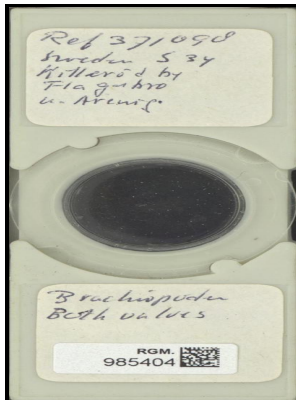 Ref 371098
Sweden S 34
Killeröd by
Flagabro
u. Arenig.
Brachiopoden
Both valves
RGM.
985404